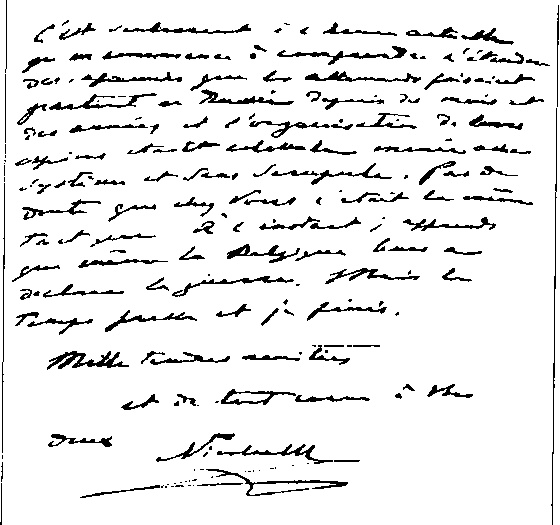 C'est seulement à l'heure actuelle
qu'on commence à comprendre l'étendue
des que les allemands faisaient
partout en Russie depuis des mois et
des années et l'organisation de leurs
espions était menée avec
système et sans scrupule. Pas de
doute que chez vous c'était la même
tactique A l'instant j'apprends
que même la Belgique leur a
déclaré la guerre. Mais le
temps presse et je finis.
Mille tendres amitiés
et de tout coeur à Vous
deux
Nicolas